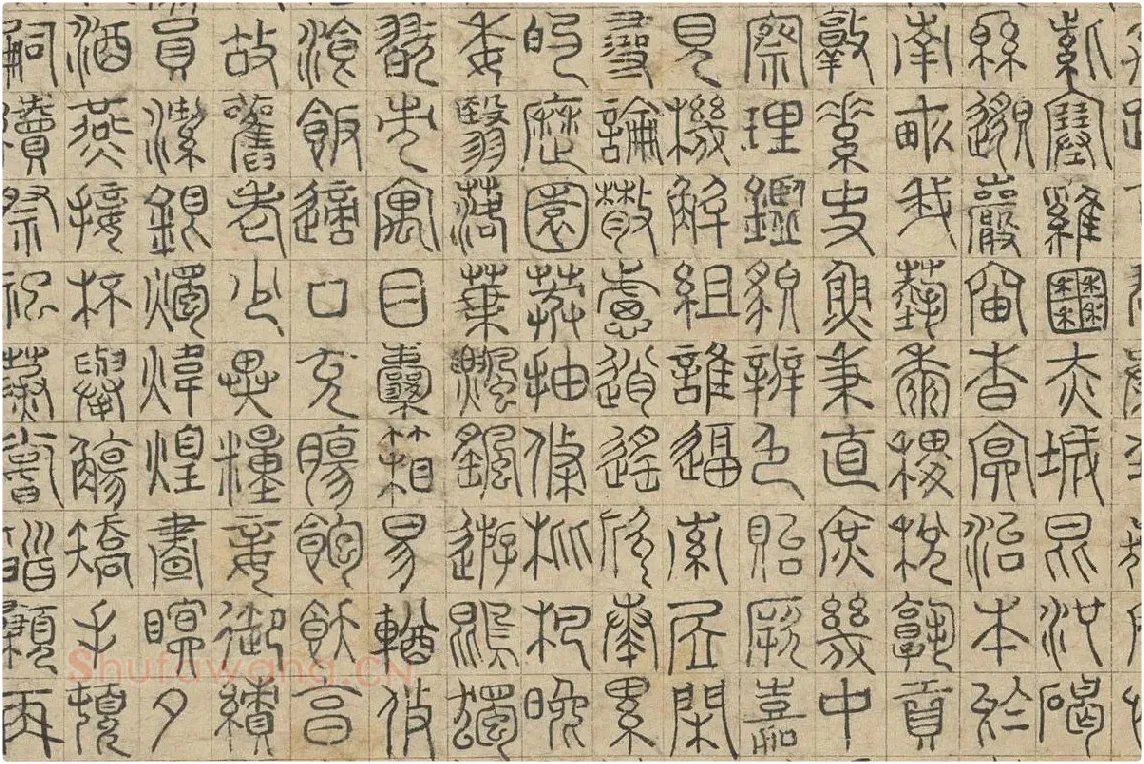 紫塞雞田赤城昆池碣
綿邈巖岫杳冥治本於
南畝我藝黍稷稅熟貢
敦素史魚秉直庶幾中
察理鑑貌辨色貽厥嘉
見機解組誰逼索居閑
尋論散慮逍遙欣奏累
的歷園莽抽條枇杷晚
委翳落葉飄颻遊鵾獨
翫市寓目囊箱易輶攸
飡飯適口充腸飽飫亯
故舊老少異糧妾御績
員潔銀燭煒煌晝瞑夕
酒燕接杯舉觴矯手頓
嗣續祭祀蒸嘗稽顙再
Shufawang.CN